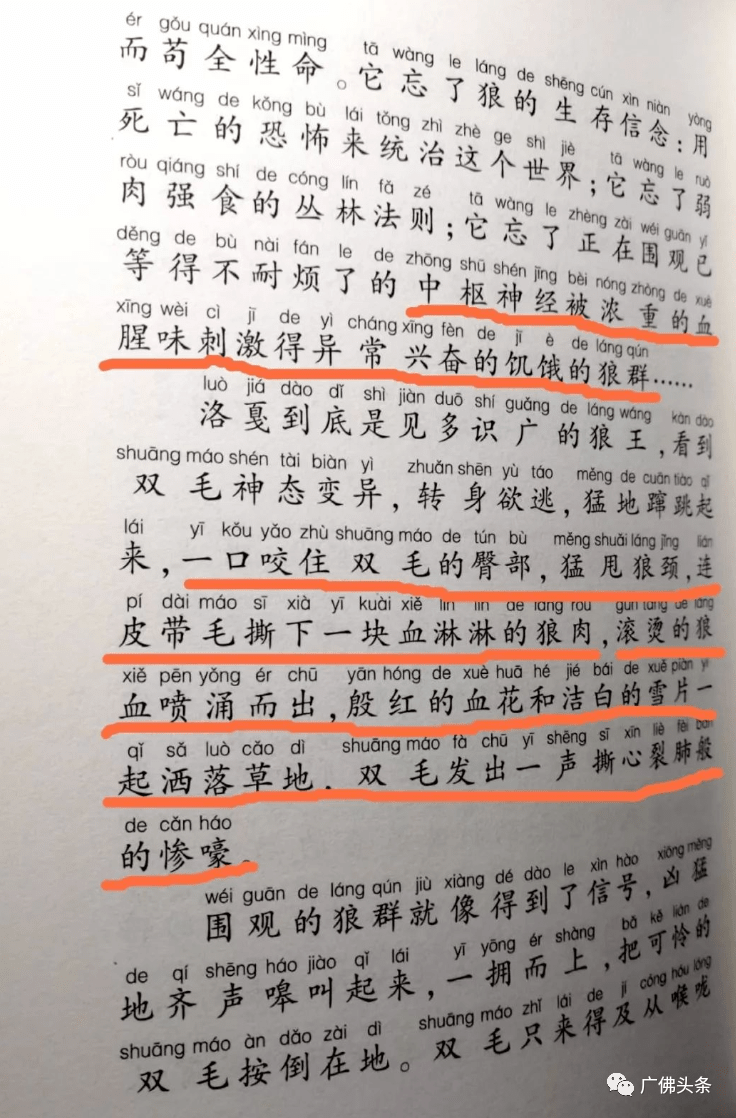 ér gǒu quán xìng mìng tā wàng le láng de shēng cún xìn niàn yòng
而苟全性命。它忘了狼的生存信念：用
sǐ wáng de kǒng bù lái tǒng zhì zhè ge shì jiè tā wàng le ruò
死亡的恐怖来统治这个世界；它忘了弱
ròu qiáng shí de cóng lín fǎ zé tā wàng le zhèng zài wéi guān yǐ
肉强食的丛林法则；它忘了正在围观已
děng de bù nài fán le de zhōng shū shén jīng bèi nóng zhòng de xuè
等得不耐烦了的中枢神经被浓重的血
xīng wèi cì jī de yì cháng xīng fèn de jī è de láng qún
腥味刺激得异常兴奋的饥饿的狼群……
luò jiá dào dǐ shì jiàn duō shí guǎng de láng wáng kàn dào
洛戛到底是见多识广的狼王，看到
shuāng máo shén tài biàn yì zhuǎn shēn yù táo měng de cuān tiào qǐ
双毛神态变异，转身欲逃，猛地蹿跳起
lái yī kǒu yǎo zhù shuāng máo de tún bù měng shuǎi láng jǐng lián
来，一口咬住双毛的臀部，猛甩狼颈，连
pí dài máo sī xià yī kuài xiě lín lín de láng ròu gǔn tàng de láng
皮带毛撕下一块血淋淋的狼肉，滚烫的狼
xiě pēn yǒng ér chū yān hóng de xuè huā hé jié bái de xuě piàn yī
血喷涌而出，殷红的血花和洁白的雪片一
qǐ sǎ luò cǎo dì shuāng máo fā chū yī shēng sī xīn liè fèi bān
起洒落草地。双毛发出一声撕心裂肺般
de cǎn háo
的惨嚎。
wéi guān de láng qún jiù xiàng dé dào le xìn hào xiōng měng
围观的狼群就像得到了信号，凶猛
de qí shēng háo jiào qǐ lái yī yōng ér shàng bǎ kě lián de
地齐声嗥叫起来，一拥而上，把可怜的
shuāng máo àn dǎo zài dì shuāng máo zhǐ lái de jí cóng hóu lóng
双毛按倒在地。双毛只来得及从喉咙
广佛头条